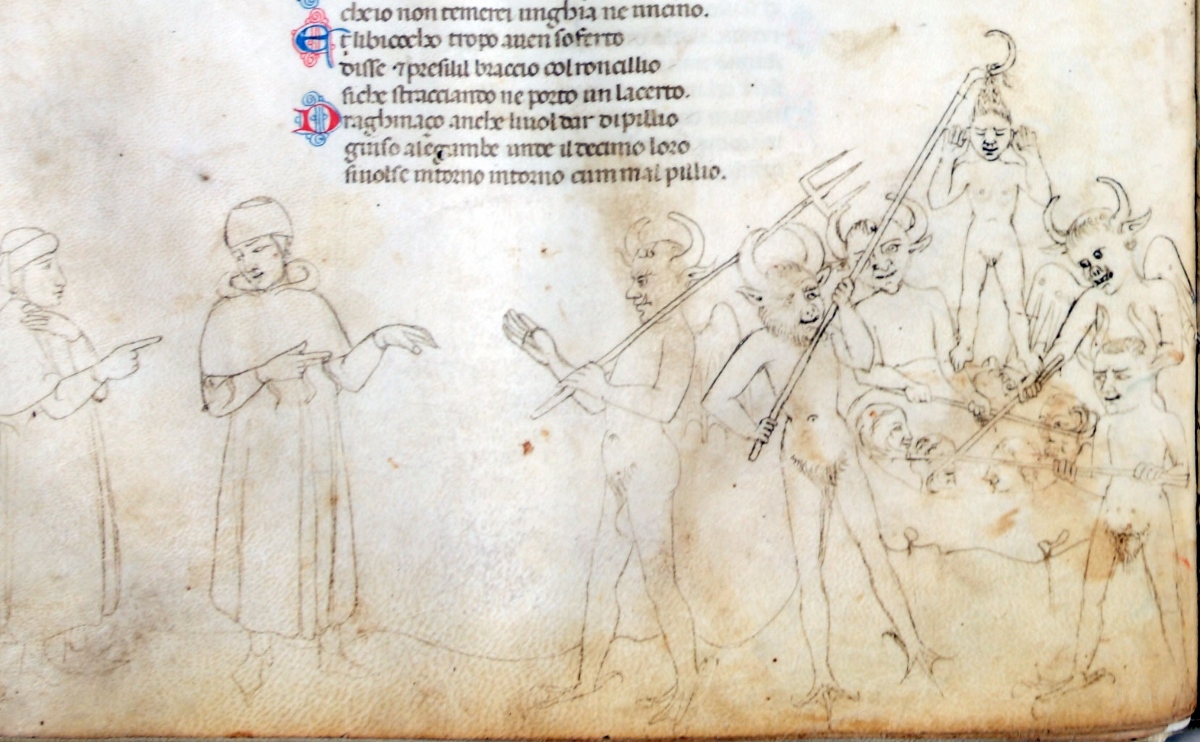 cheio non temerei unghia ne uncino.
Et libicocho tropo auen soferto
disse ⁊ presilil braccio col roncillio
si che stracciando ne porto un lacerto.
Draghinaço anche li uol dar di pillio
giuso a le gambe unde il decimo loro
si uolse intorno intorno cum mal pillio.